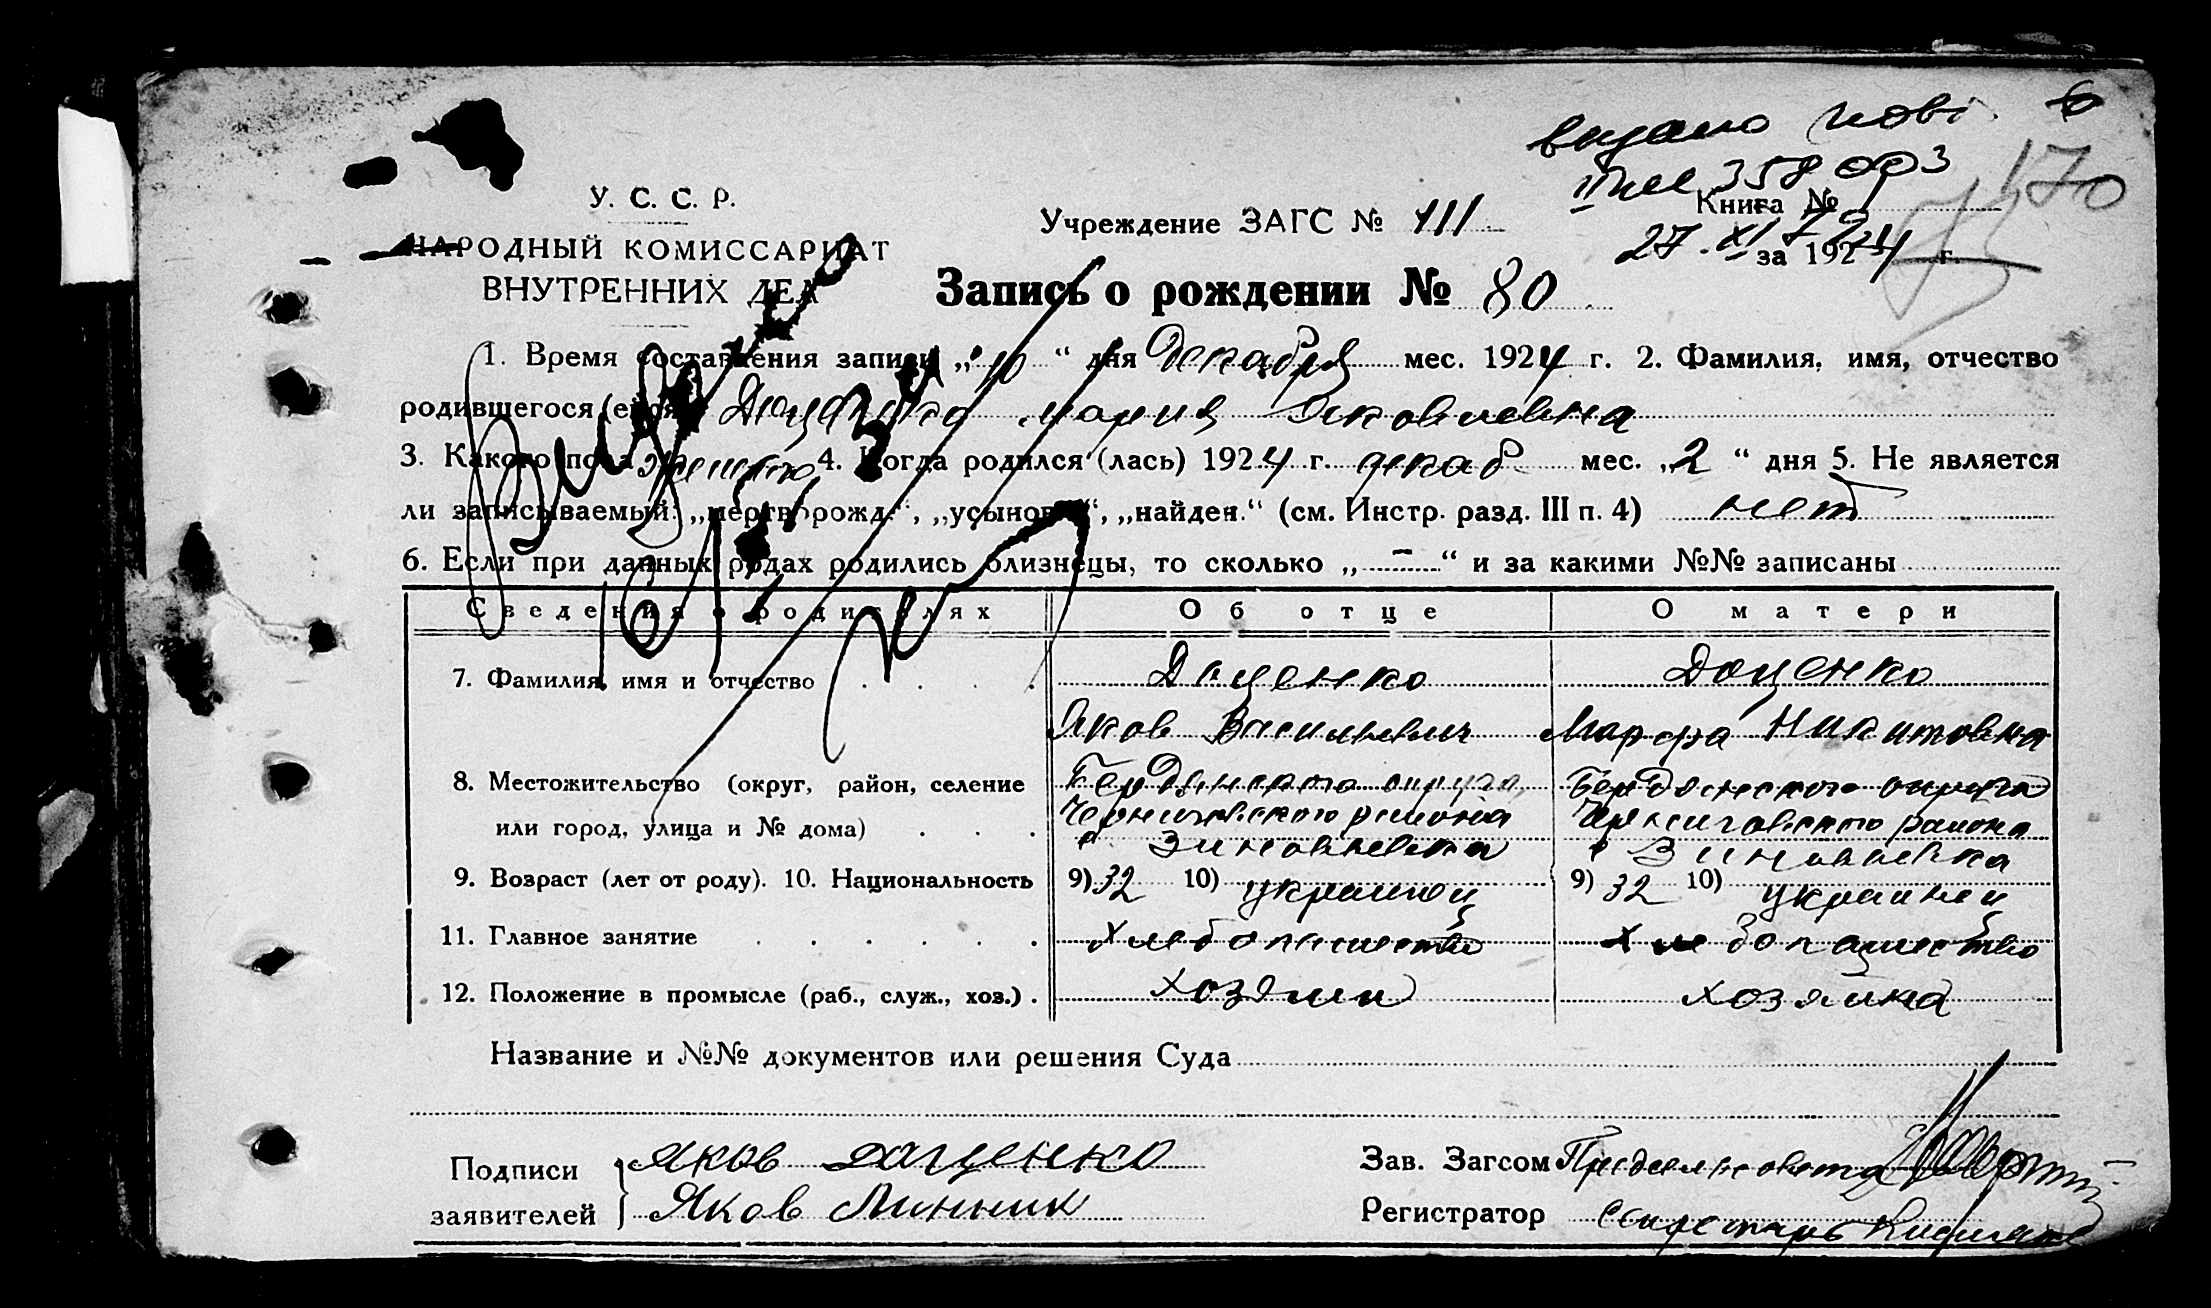 видано нові 6
II ПЖ 358003 170
27.XI.72
У. С. С. Р.
НАРОДНЫЙ КОМИССАРИАТ
ВНУТРЕННИХ ДЕЛ
Учреждение ЗАГС № 111
Книга №
за 1924 г.
Запись о рождении № 80
1. Время составления записи „10“ дня Декабря мес. 1924 г. 2. Фамилия, имя, отчество
родившегося (ейся) Доценко Мария Яковлевна
3. Какого пола женск 4. Когда родился (лась) 1924 г. декаб мес. „2“ дня 5. Не является
ли записываемый: „мертворожд.“, „усыновл.“, „найден.“ (см. Инстр. разд. III п. 4) нет
6. Если при данных родах родились близнецы, то сколько „–“ и за какими №№ записаны
Сведения о родителях Об отце О матери
7. Фамилия, имя и отчество Доценко Доценко
Яков Васильевич Марфа Никитовна
8. Местожительство (округ, район, селение Бердянского округа, Бердянского округа
или город, улица и № дома) Черниговского района Черниговского района
с Зиновьевка с Зиновьевка
9. Возраст (лет от роду). 10. Национальность 9) 32 10) украинец 9) 32 10) украинец
11. Главное занятие Хлебопашество Хлебопашество
12. Положение в промысле (раб., служ., хоз.) хозяин хозяйка
Название и №№ документов или решения Суда
Подписи Яков Даценко
заявителей Яков Минник
Зав. Загсом
Регистратор Секретарь